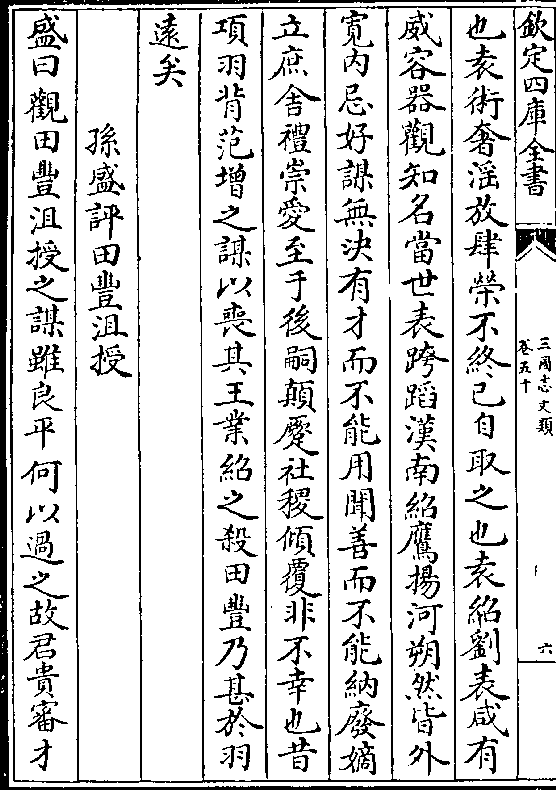 欽定四庫全書
三國志文類
卷五十
六
也袁術奢淫放肆榮不終已自取之也袁紹劉表咸有
威容器觀知名當世表跨蹈漢南紹鷹揚河朔然皆外
寛内忌好謀無決有才而不能用聞善而不能納廢嫡
立庶舍禮崇愛至于後嗣顛蹷社稷傾覆非不幸也昔
項羽背范增之謀以喪其王業紹之殺田豐乃甚於羽
遠矣
孫盛評田豐沮授
盛曰觀田豐沮授之謀雖良平何以過之故君貴審才